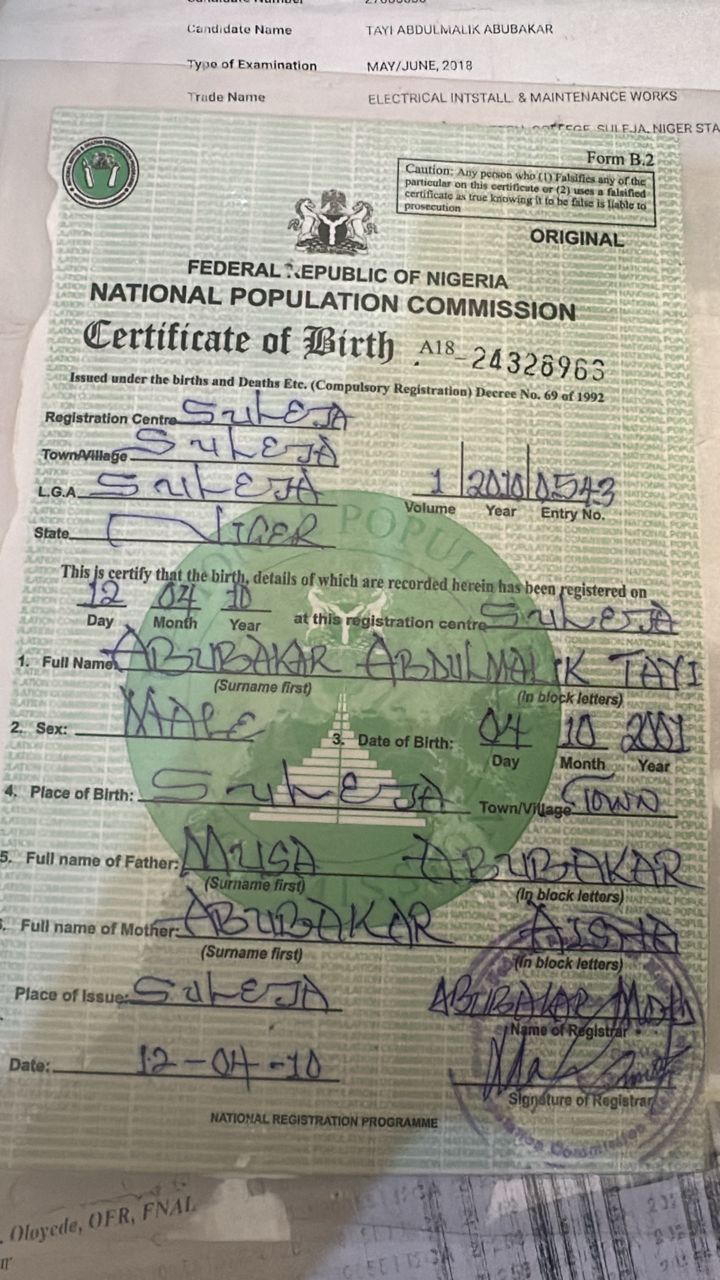 Candidate Name TAYI ABDULMALIK ABUBAKAR
Type of Examination MAY/JUNE, 2018
Trade Name ELECTRICAL INTSTALL. & MAINTENANCE WORKS
SULEJA, NIGER STA
Form B.2
Caution: Any person who (1) Falsifies any of the
particular on this certificate or (2) uses a falsified
certificate as true knowing it to be false is liable to
prosecution
ORIGINAL
FEDERAL REPUBLIC OF NIGERIA
NATIONAL POPULATION COMMISSION
Certificate of Birth A18-24326963
Issued under the births and Deaths Etc. (Compulsory Registration) Decree No. 69 of 1992
Registration Centre SULEJA
Town/Village SULEJA
L.G.A SULEJA 1 2010 0543
Volume Year Entry No.
State NIGER
This is certify that the birth, details of which are recorded herein has been registered on
12 04 10 at this registration centre SULEJA
Day Month Year
1. Full Name ABUBAKAR ABDULMALIK TAYI
(Surname first) (In block letters)
2. Sex: MALE 3. Date of Birth: 04 10 2001
Day Month Year
4. Place of Birth: SULEJA Town/Village TOWN
5. Full name of Father: MUSA ABUBAKAR
(Surname first) (In block letters)
. Full name of Mother: ABUBAKAR AISHA
(Surname first) (In block letters)
Place of Issue: SULEJA ABUBAKAR MOH
Name of Registrar
Date: 12-04-10
Signature of Registrar
NATIONAL REGISTRATION PROGRAMME
. Oloyede, OFR, FNAL